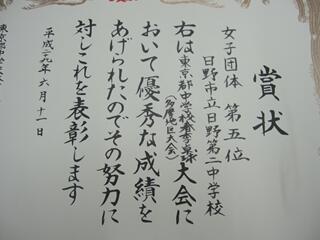 賞状
女子団体 第五位
日野市立日野第二中学校
右は東京都中学校春季卓球大会に
(多摩地区大会)
おいて優秀な成績を
あげられたのでその努力に
対しこれを表彰します
平成二十九年六月十一日
東京都中学校